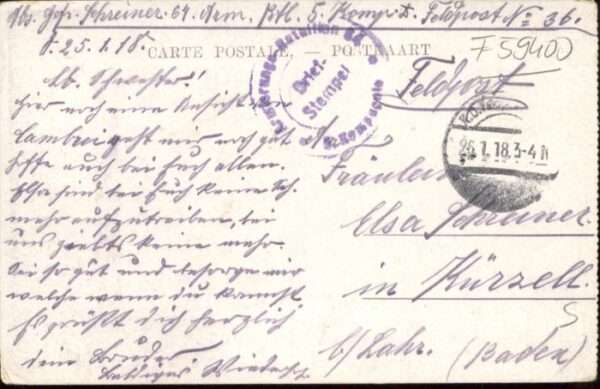 Abs. Gefr. Schreiner. 64. Arm. Btl. 5. Komp. D. Feldpost No 36.
F59400
d. 25.1.18.
CARTE POSTALE. — POSTKAART
Feldpost
Armierungs-Bataillon 64
Brief-
Stempel
5. Kompagnie
26.1.18.3-4 N
Lb. Schwester!
Hier noch eine Ansicht von
Cambrai geht mir noch gut
hoffe auch bei Euch allen.
Elsa sind bei Euch keine
mehr aufzutreiben, bei
uns giebts keine mehr.
Sei so gut und besorge mir
welche wenn du kannst
Es grüßt dich herzlich
dein Bruder
baldiges Wieders.
An
Fräulein
Elsa Schreiner.
in Kürzell.
b/Lahr. (Baden)